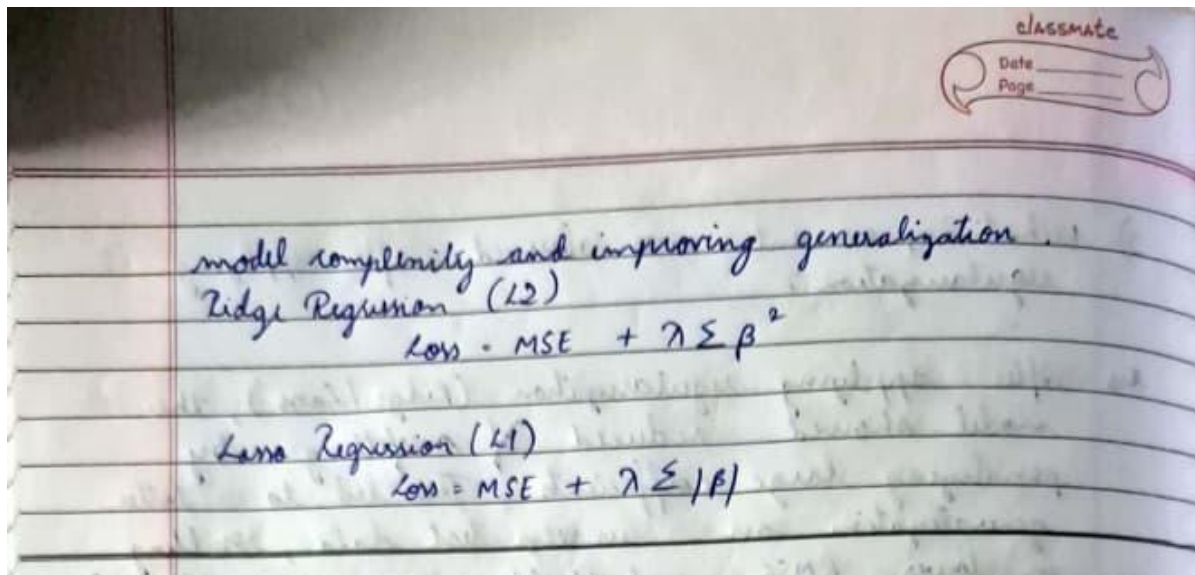 classmate
Date
Page
model complexity and improving generalization.
Ridge Regression (L2)
Loss = MSE + λ Σ β²
Lasso Regression (L1)
Loss = MSE + λ Σ |β|